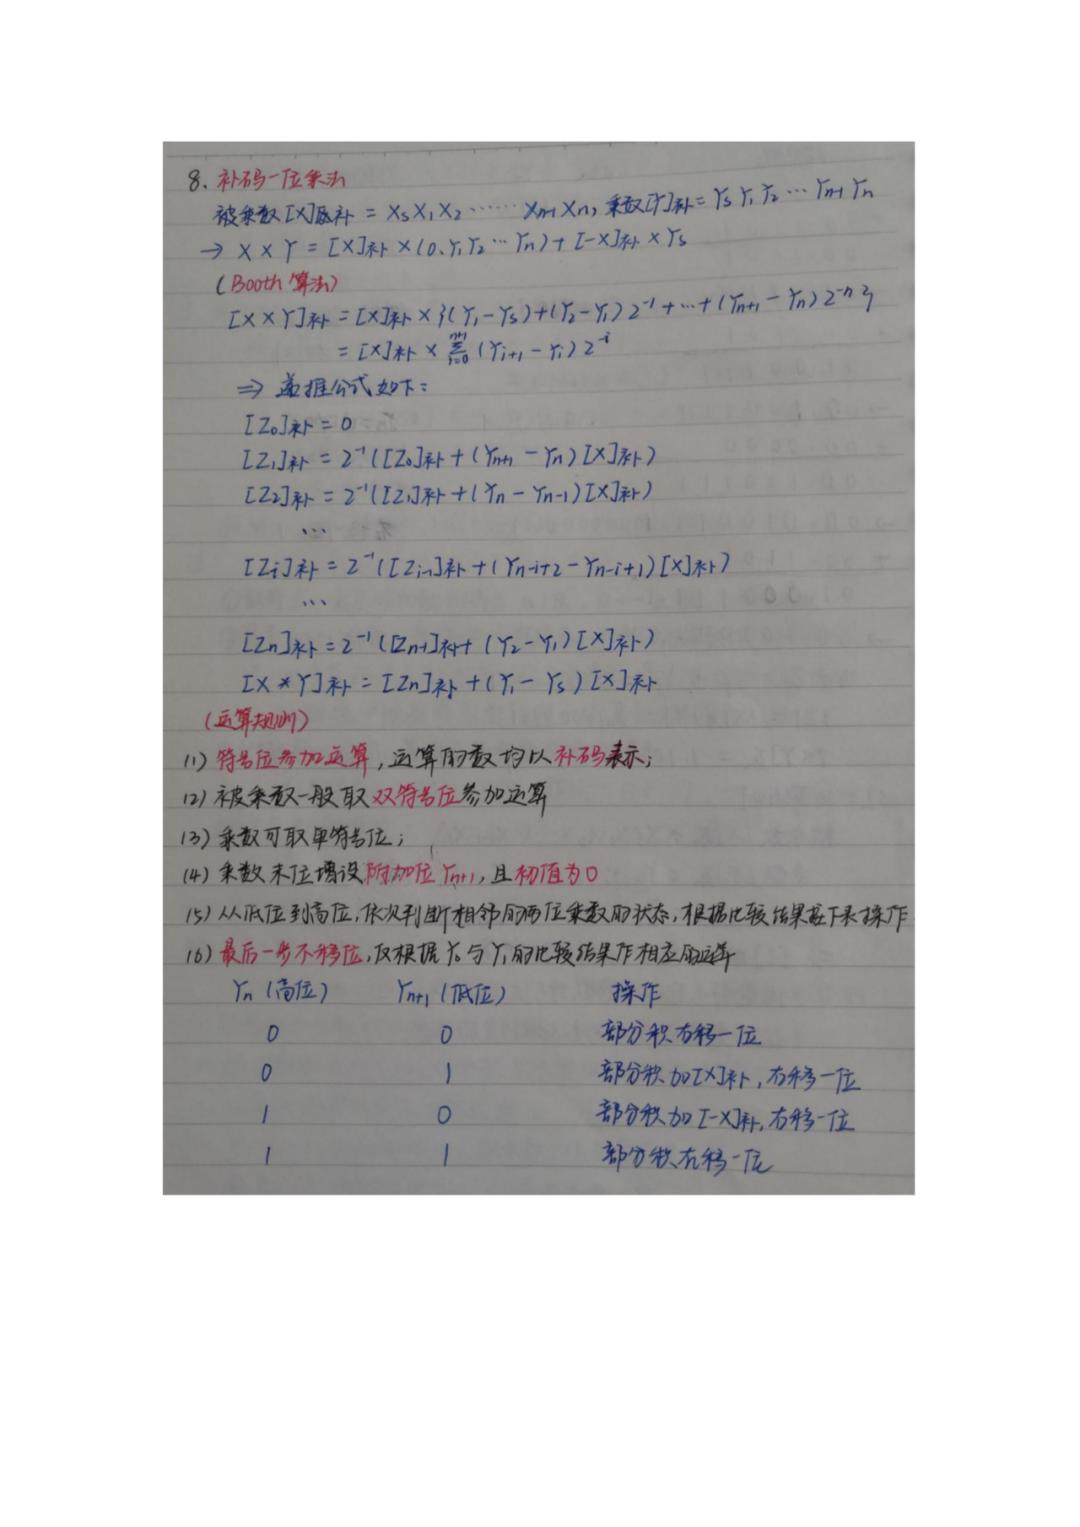 8、补码一位乘法
被乘数[X]补 = XsX₁X₂……Xn-1Xn, 乘数[Y]补 = YsY₁Y₂…Yn-1Yn
→ X×Y = [X]补×(0.Y₁Y₂…Yn)+[-X]补×Ys
(Booth算法)
[X×Y]补 = [X]补×{(Y₁-Ys)+(Y₂-Y₁)2⁻¹+…+(Yn+1-Yn)2⁻ⁿ}
= [X]补× Σ i=0 (Yi+1-Yi)2⁻ⁱ
⇒ 递推公式如下:
[Z₀]补 = 0
[Z₁]补 = 2⁻¹([Z₀]补+(Yn+1-Yn)[X]补)
[Z₂]补 = 2⁻¹([Z₁]补+(Yn-Yn-1)[X]补)
…
[Zi]补 = 2⁻¹([Zi-1]补+(Yn-i+2-Yn-i+1)[X]补)
…
[Zn]补 = 2⁻¹([Zn-1]补+(Y₂-Y₁)[X]补)
[X*Y]补 = [Zn]补+(Y₁-Ys)[X]补
(运算规则)
(1) 符号位参加运算,运算的数均以补码表示;
(2) 被乘数一般取双符号位参加运算
(3) 乘数可取单符号位;
(4) 乘数末位增设附加位Yn+1,且初值为0
(5) 从低位到高位,依次判断相邻的两位乘数的状态,根据比较结果按下表操作
(6) 最后一步不移位,仅根据Y₀与Y₁的比较结果作相应的运算
Yn (高位) Yn+1 (低位) 操作
0 0 部分积右移一位
0 1 部分积加[X]补,右移一位
1 0 部分积加[-X]补,右移一位
1 1 部分积右移一位